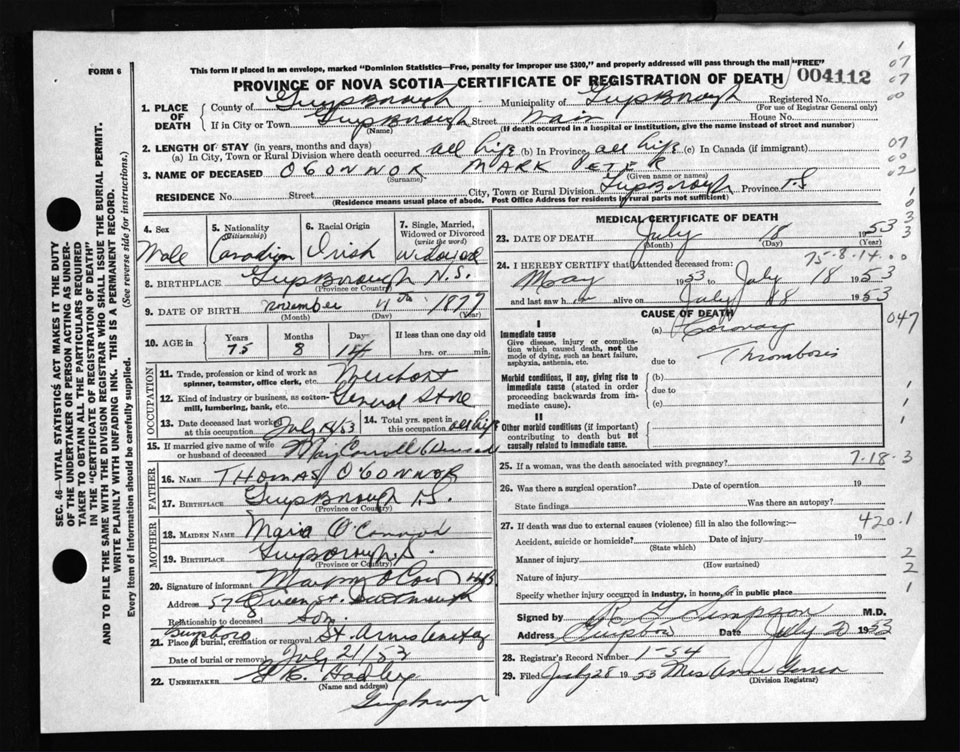 FORM 6
This form if placed in an envelope, marked "Dominion Statistics—Free, penalty for improper use $300," and properly addressed will pass through the mail "FREE"
PROVINCE OF NOVA SCOTIA—CERTIFICATE OF REGISTRATION OF DEATH
004112
1. PLACE OF DEATH
County of Guysborough Municipality of Guysborough Registered No.
(For use of Registrar General only)
If in City or Town Guysborough Street Main House No.
(Name) (If death occurred in a hospital or institution, give the name instead of street and number)
2. LENGTH OF STAY (in years, months and days)
(a) In City, Town or Rural Division where death occurred all life (b) In Province all life (c) In Canada (if immigrant)
3. NAME OF DECEASED O'CONNOR MARK PETER
(Surname) (Given name or names)
RESIDENCE No. Street City, Town or Rural Division Guysborough Province N.S
(Residence means usual place of abode. Post Office Address for residents in rural parts not sufficient)
4. Sex
Male
5. Nationality
(Citizenship)
Canadian
6. Racial Origin
Irish
7. Single, Married, Widowed or Divorced
(write the word)
Widowed
8. BIRTHPLACE Guysborough N.S.
(Province or Country)
9. DATE OF BIRTH November 4th 1877
(Month) (Day) (Year)
10. AGE in
Years Months Days If less than one day old
75 8 14 hrs. or min.
OCCUPATION
11. Trade, profession or kind of work as spinner, teamster, office clerk, etc. Merchant
12. Kind of industry or business, as cotton-mill, lumbering, bank, etc. General Store
13. Date deceased last worked at this occupation July 53
14. Total years spent in this occupation all life
15. If married give name of wife or husband of deceased May Carroll Deceased
FATHER
16. NAME THOMAS O'CONNOR
17. BIRTHPLACE Guysborough N.S.
(Province or Country)
MOTHER
18. MAIDEN NAME Maria O'Connor
19. BIRTHPLACE Guysborough N.S.
(Province or Country)
20. Signature of informant
Address 57 Queen St. Dartmouth
Relationship to deceased Son
Guysboro
21. Place of burial, cremation or removal St. Anns
Date of burial or removal July 21/53
22. UNDERTAKER Hadley
(Name and address)
Guysborough
MEDICAL CERTIFICATE OF DEATH
23. DATE OF DEATH July 18 1953
(Month) (Day) (Year)
75-8-14
24. I HEREBY CERTIFY that I attended deceased from:
May 1953 July 18 1953
and last saw h alive on July 18 1953
CAUSE OF DEATH
047
I
Immediate cause
Give disease, injury or complication which caused death, not the mode of dying, such as heart failure, asphyxia, asthenia, etc.
(a) Coronary
due to Thrombosis
Morbid conditions, if any, giving rise to immediate cause (stated in order proceeding backwards from immediate cause).
(b)
due to
(c)
II
Other morbid conditions (if important) contributing to death but not causally related to immediate cause.
25. If a woman, was the death associated with pregnancy?
7-18-3
26. Was there a surgical operation? Date of operation 19
State findings Was there an autopsy?
27. If death was due to external causes (violence) fill in also the following:—
420.1
Accident, suicide or homicide? Date of injury 19
(State which)
Manner of injury
(How sustained)
Nature of injury
Specify whether injury occurred in industry, in home, or in public place
Signed by R Simpson M.D.
Address Guysboro Date July 20 1953
28. Registrar's Record Number 1-54
29. Filed July 28 1953 Mrs Anne
(Division Registrar)
SEC. 46—VITAL STATISTICS ACT MAKES IT THE DUTY
OF THE UNDERTAKER OR PERSON ACTING AS UNDER-
TAKER TO OBTAIN ALL THE PARTICULARS REQUIRED
IN THE "CERTIFICATE OF REGISTRATION OF DEATH"
AND TO FILE THE SAME WITH THE DIVISION REGISTRAR WHO SHALL ISSUE THE BURIAL PERMIT.
WRITE PLAINLY WITH UNFADING INK. THIS IS A PERMANENT RECORD.
Every item of information should be carefully supplied. (See reverse side for instructions.)